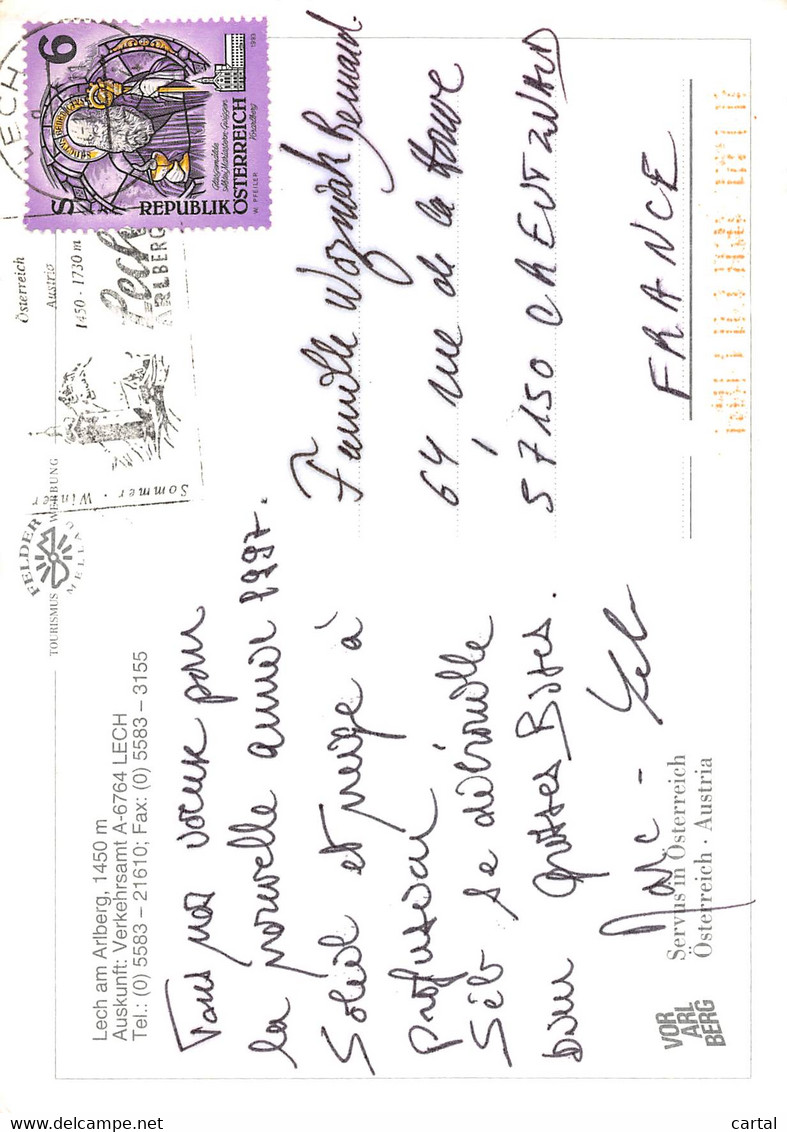 Lech am Arlberg, 1450 m
Auskunft: Verkehrsamt A-6764 LECH
Tel.: (0) 5583 – 21610; Fax: (0) 5583 – 3155
Tous nos voeux pour
la nouvelle année 1997.
Soleil et neige à
profusion
Séb se débrouille
bien Grosses Bises.
Marc - Seb
VOR
ARL
BERG
Servus in Österreich
Österreich · Austria
TOURISMUS WERBUNG
FELDER
MELLAU
Österreich
Austria
1450 - 1730 m
Lech
ARLBERG
Sommer · Winter
LECH
S 6
1993
Glasgemälde
Knradlberg
REPUBLIK
ÖSTERREICH
W. PFEILER
Famille Wozniak Bernard
64 rue de la Houve
57150 CREUTZWALD
FRANCE
cartal